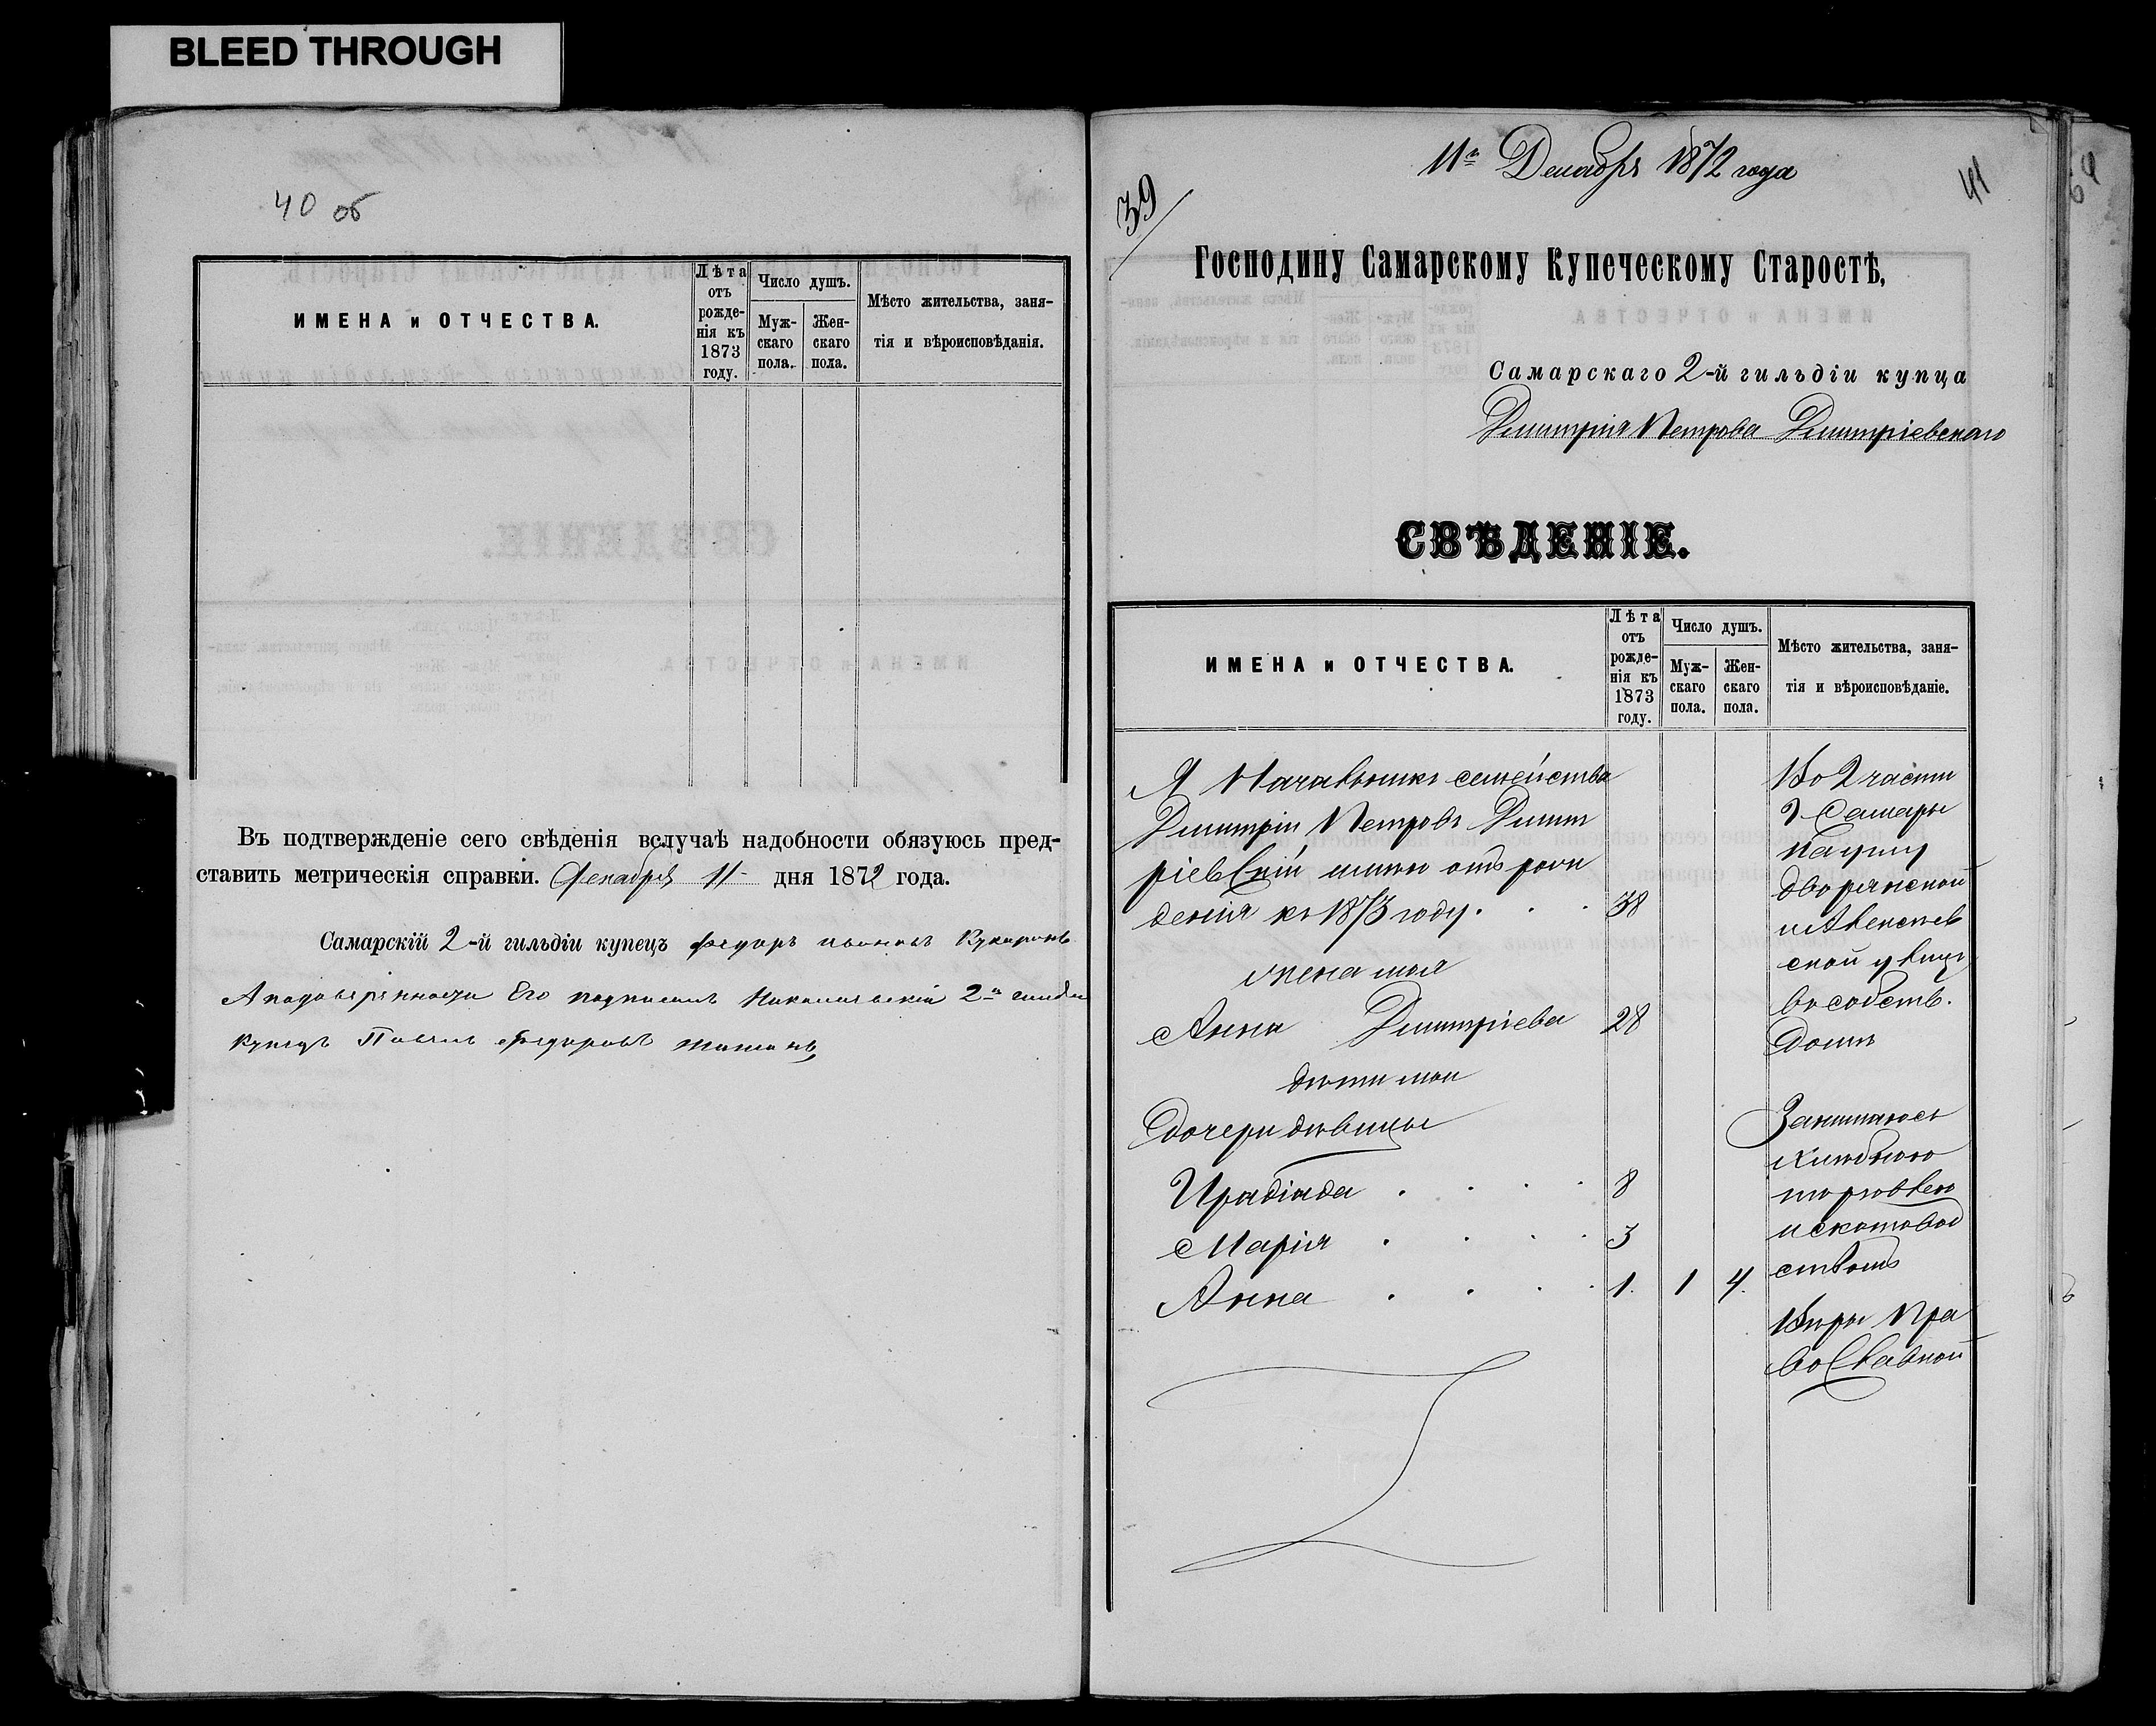 BLEED THROUGH
40 об
ИМЕНА и ОТЧЕСТВА.
Лѣта отъ рожденія къ 1873 году.
Число душъ.
Мужскаго пола.
Женскаго пола.
Мѣсто жительства, заня-
тія и вѣроисповѣданія.
Въ подтвержденіе сего свѣденія вслучаѣ надобности обязуюсь пред-
ставить метрическія справки. Декабря 11 дня 1872 года.
Самарскій 2-й гильдіи купецъ Федоръ
А подовѣренности Его подписалъ Николаевскій 2й гильди
купецъ Павелъ Федоровъ
11го Декабря 1872 года
39
41
Господину Самарскому Купеческому Старостѣ,
Самарскаго 2-й гильдіи купца
Дмитрія Петрова Дмитріевскаго
СВѢДЕНІЕ.
ИМЕНА и ОТЧЕСТВА.
Лѣта отъ рожденія къ 1873 году.
Число душъ.
Мужскаго пола.
Женскаго пола.
Мѣсто жительства, заня-
тія и вѣроисповѣданіе.
Я Началникъ семейства
Дмитрій Петровъ Дмит
ріевскій отъ рож
денія къ 1873 году. 38
жена моя
Анна Дмитріева 28
дѣти мои
Дочери дѣвицы
Ираdіада 8
Марія 3
Анна 1. 1 4.
Во 2 части
г Самары
на углу
дворянской
и Алексѣев
ской улицъ
въ собств.
домѣ
Занимаюсь
хлѣбною
торговлею
и скотовод
ствомъ
Вѣры Пра
вославной